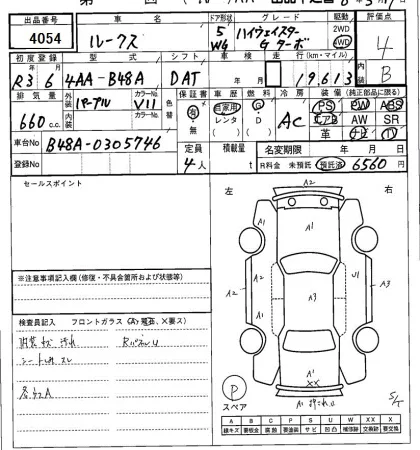 出品番号 車名 ドア形状 グレード 駆動 評価点
4054 ルークス 5 WG ハイウェイスター Gターボ 2WD 4WD 4
初度登録 型式 シフト 車検 走行(km・マイル) 内装 B
R3年 6月 4AA-B48A DAT 年 月 19,613
排気量 外装 パープル カラーNo. V11 色替 保証書 車歴 燃料 冷房 装備(純正部品に限る)
660 c.c. 内装 カラーNo. 有・無 自家用 レンタ G D AC PS PW ABS
エアB AW SR
革 ナビ TV
車台No B48A-0305746 定員 積載量 名変期限 年 月 日
登録No 4人 t R料金 未預託 預託済 6560円
セールスポイント
左 右
A2
A1 A1
A2 A2 A3 U1 A3
A1
A1
XX
※注意事項記入欄(修復・不具合箇所および状態等)
検査員記入 フロントガラス(A、飛石、X要ス)
内装 汚れ Rバンパー
シート スレ
各所A
P
スペア
S/T
A B C P S U W XX X
線キズ 要板金 腐蝕 要塗装 サビ 凹凸 補修跡 交換跡 要交換